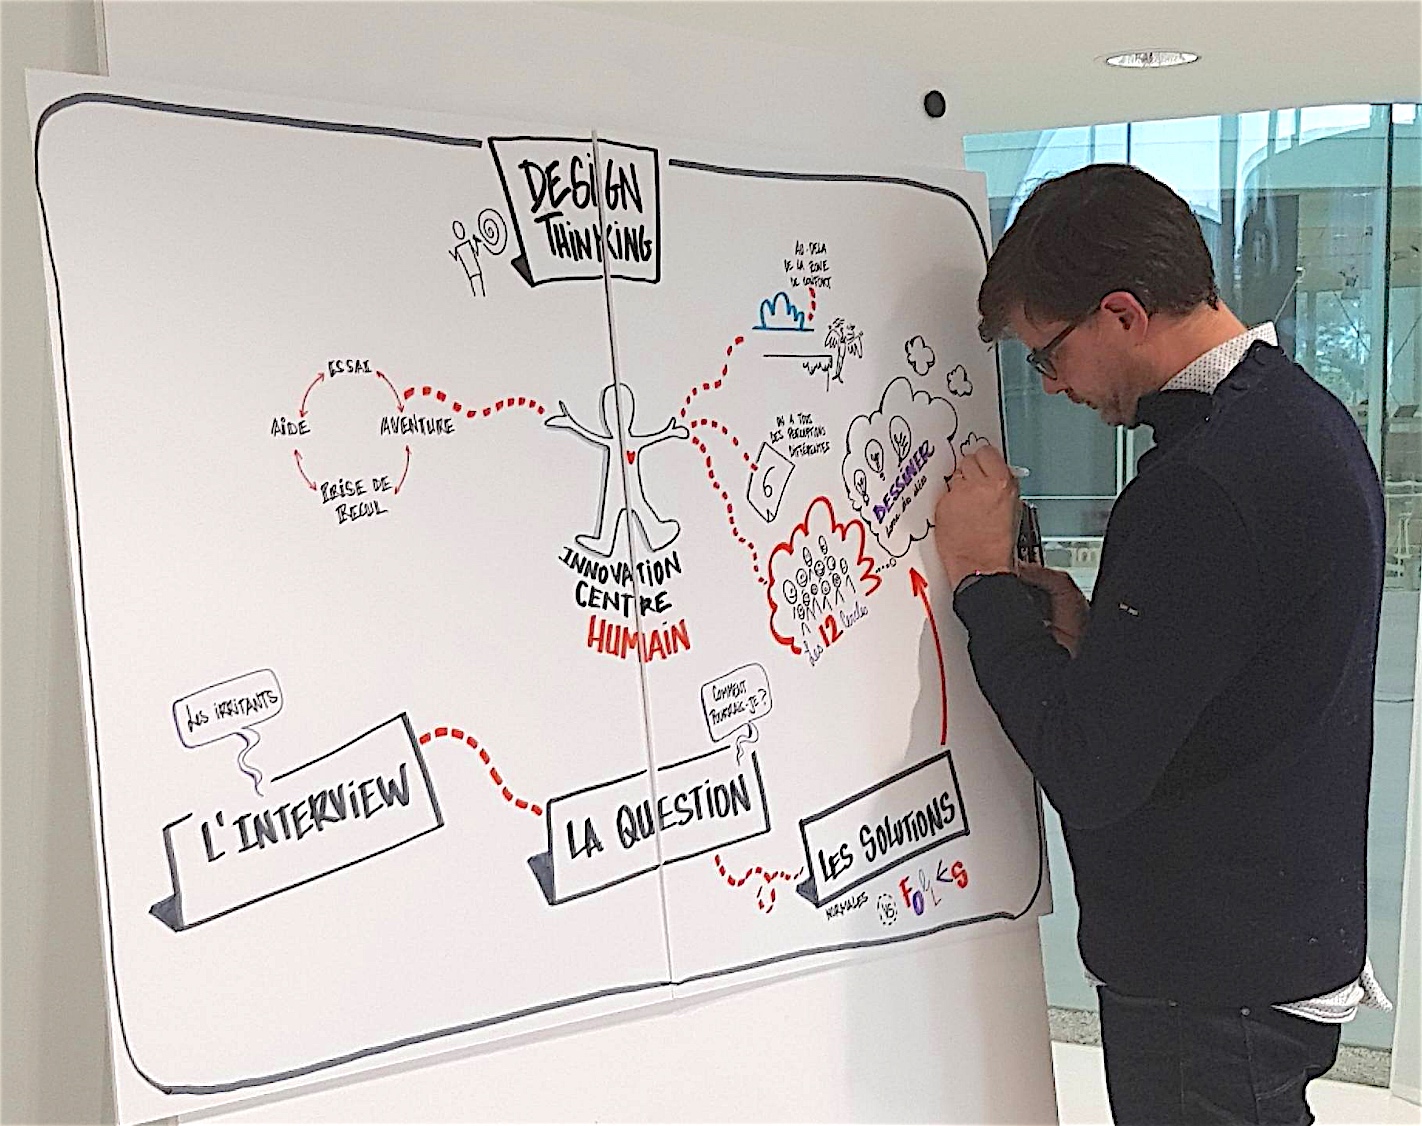 DESIGN
THINKING
AU-DELA
DE LA ZONE
DE CONFORT
ESSAI
AIDE
AVENTURE
PRISE DE
RECUL
ON A TOUS
DES PERCEPTIONS
DIFFÉRENTES
6
DESSINER
INNOVATION
CENTRE
HUMAIN
Les 12
LES IRRITANTS
COMMENT
POURRAIS-JE?
L'INTERVIEW
LA QUESTION
LES SOLUTIONS
NORMALES VS FOLLES